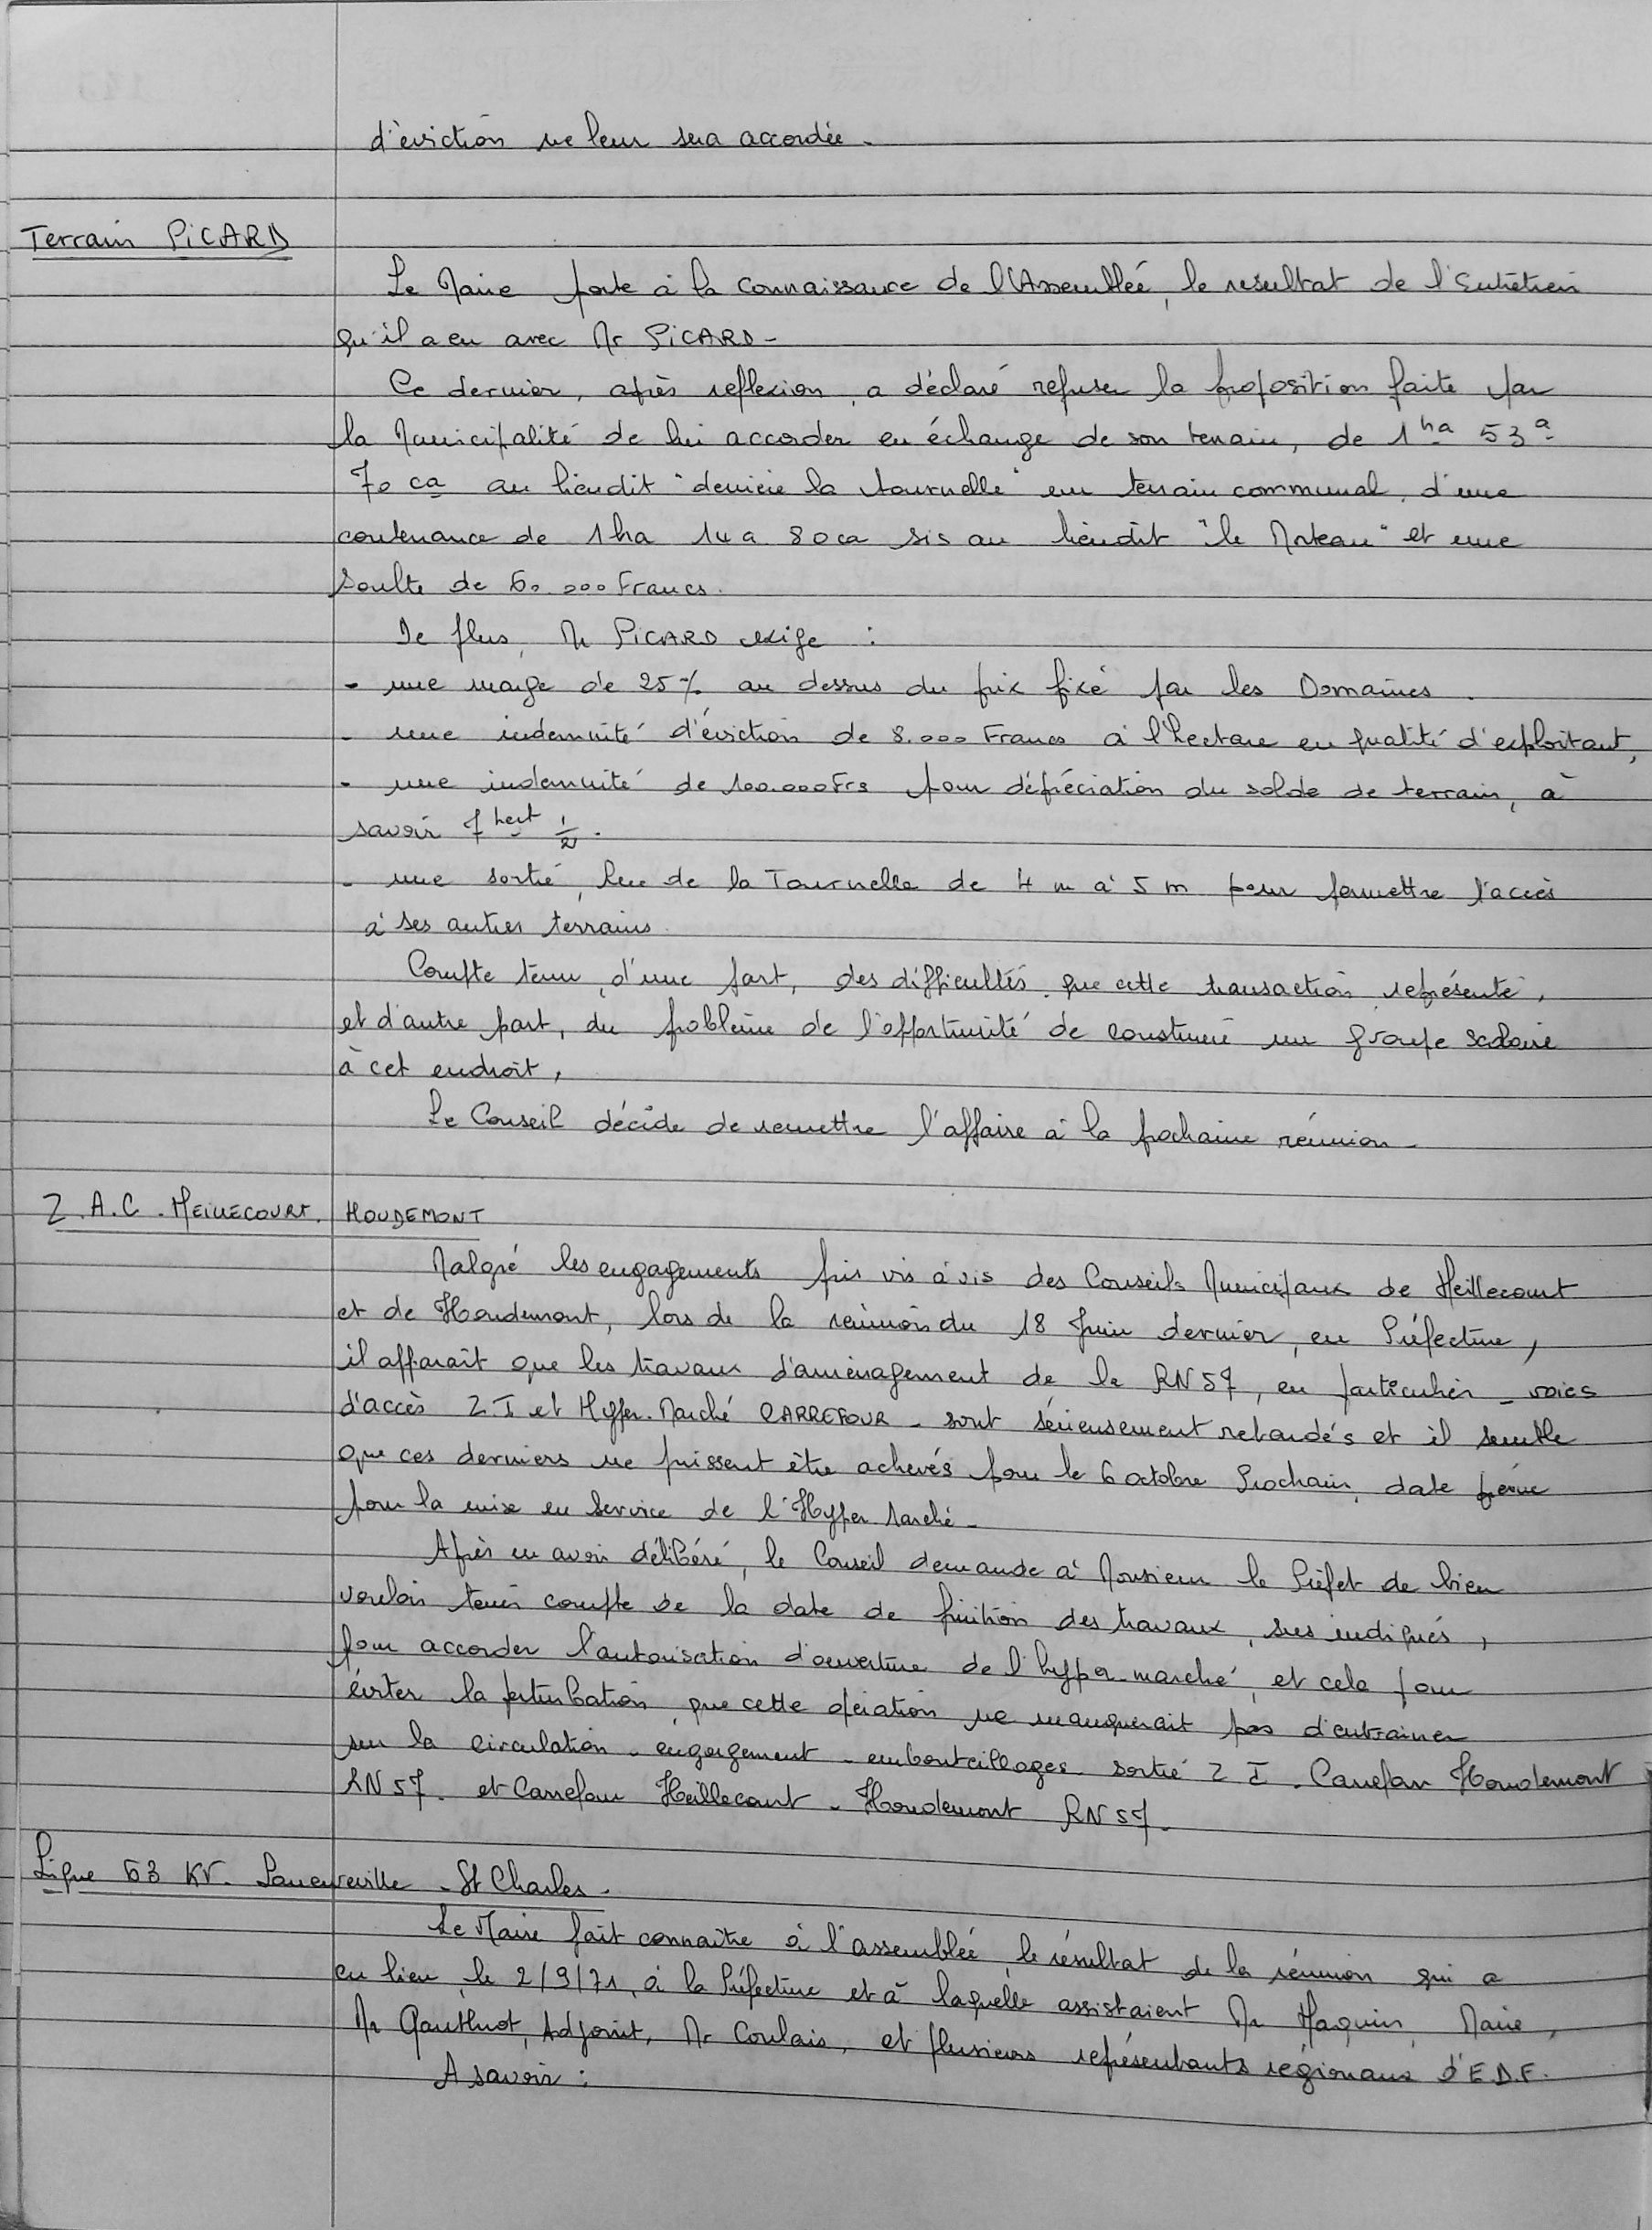 d'éviction ne leur sera accordée.
Terrain PICARD
Le Maire porte à la connaissance de l'Assemblée, le résultat de l'Entretien
qu'il a eu avec Mr PICARD -
Ce dernier, après reflexion, a déclaré refuser la proposition faite par
la Municipalité de lui accorder en échange de son terrain, de 1 ha 53 a
70 ca au lieudit "derrière la tournelle" un terrain communal, d'une
contenance de 1 ha 14 a 80 ca sis au lieudit "le Morteau" et une
soulte de 60.000 Francs.
De plus, Mr PICARD exige :
- une marge de 25% au dessus du prix fixé par les Domaines.
- une indemnité d'éviction de 8.000 Francs à l'hectare en qualité d'exploitant,
- une indemnité de 100.000 Frs pour dépréciation du solde de terrain, à
savoir 7 hect 1/2.
- une sortie, Rue de la Tournelle de 4 m à 5 m pour permettre l'accès
à ses autres terrains.
Compte tenu, d'une part, des difficultés que cette transaction représente,
et d'autre part, du problème de l'opportunité de construire un groupe scolaire
à cet endroit,
Le Conseil décide de remettre l'affaire à la prochaine réunion -
Z.A.C. HEILLECOURT. HOUDEMONT
Malgré les engagements pris vis à vis des Conseils Municipaux de Heillecourt
et de Houdemont, lors de la réunion du 18 Juin dernier, en Préfecture,
il apparaît que les travaux d'aménagement de la RN 57, en particulier - voies
d'accès Z.I et Hyper. Marché CARREFOUR - sont sérieusement retardés et il semble
que ces derniers ne puissent être achevés pour le 6 octobre Prochain, date prévue
pour la mise en Service de l'Hyper Marché -
Après en avoir délibéré, le Conseil demande à Monsieur le Préfet de bien
vouloir tenir compte de la date de finition des travaux, sus indiqués,
pour accorder l'autorisation d'ouverture de l'hyper-marché, et cela pour
éviter la perturbation que cette opération ne manquerait pas d'entrainer
sur la circulation - engorgement - embouteillages - sortie Z I. Carrefour Houdemont
RN 57. et Carrefour Heillecourt - Houdemont RN 57.
Ligne 63 KV. Laneuveville - St Charles.
Le Maire fait connaître à l'assemblée, le résultat de la réunion qui a
eu lieu, le 2/9/71, à la Préfecture et à laquelle assistaient Mr Haquin, Maire,
Mr Gauthrot, Adjoint, Mr Coulais, et plusieurs représentants régionaux d'E.D.F.
A savoir :